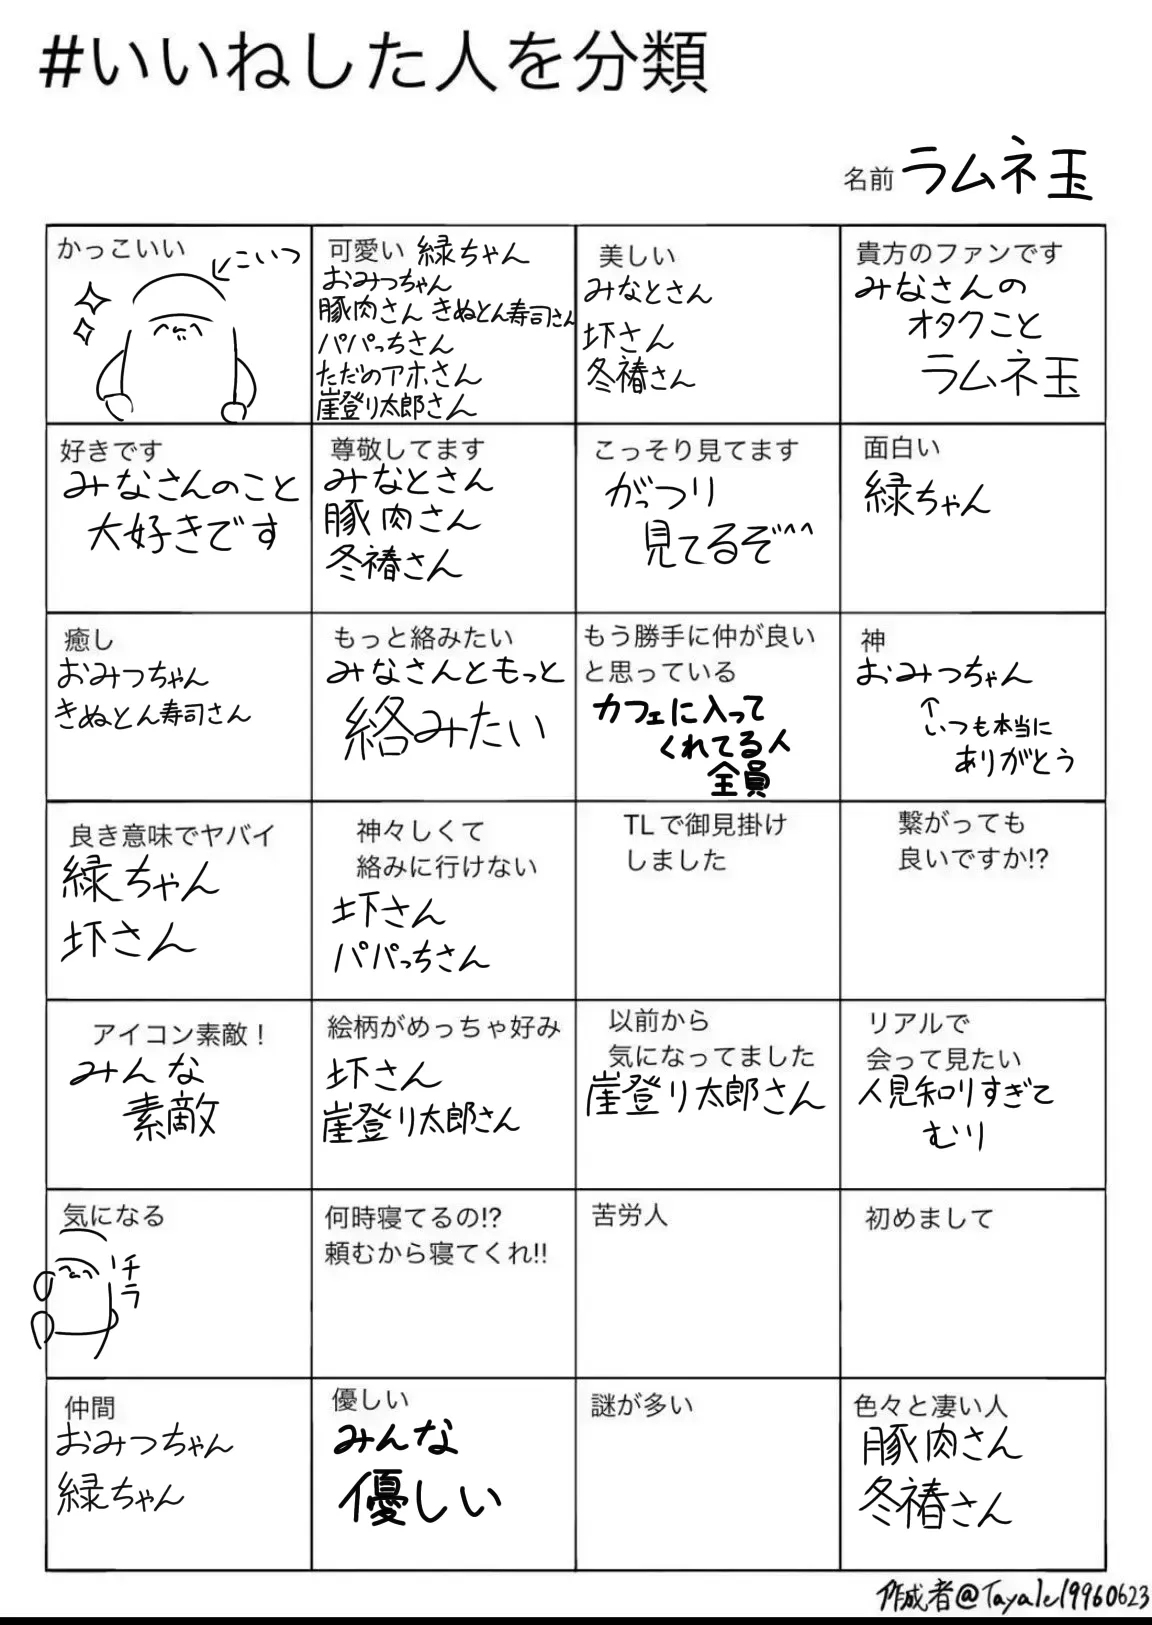 #いいねした人を分類
名前 ラムネ玉
かっこいい
こいつ
可愛い 緑ちゃん
おみつちゃん
豚肉さん きぬとん寿司さん
パパっちさん
ただのアホさん
崖登り太郎さん
美しい
みなとさん
圷さん
冬椿さん
貴方のファンです
みなさんの
オタクこと
ラムネ玉
好きです
みなさんのこと
大好きです
尊敬してます
みなとさん
豚肉さん
冬椿さん
こっそり見てます
がっつり
見てるぞ^^
面白い
緑ちゃん
癒し
おみつちゃん
きぬとん寿司さん
もっと絡みたい
みなさんともっと
絡みたい
もう勝手に仲が良い
と思っている
カフェに入って
くれてる人
全員
神
おみつちゃん
↑
いつも本当に
ありがとう
良き意味でヤバイ
緑ちゃん
圷さん
神々しくて
絡みに行けない
圷さん
パパっちさん
TLで御見掛け
しました
繋がっても
良いですか!?
アイコン素敵!
みんな
素敵
絵柄がめっちゃ好み
圷さん
崖登り太郎さん
以前から
気になってました
崖登り太郎さん
リアルで
会って見たい
人見知りすぎて
むり
気になる
チラ
何時寝てるの!?
頼むから寝てくれ!!
苦労人
初めまして
仲間
おみつちゃん
緑ちゃん
優しい
みんな
優しい
謎が多い
色々と凄い人
豚肉さん
冬椿さん
作成者@Tayale19960623